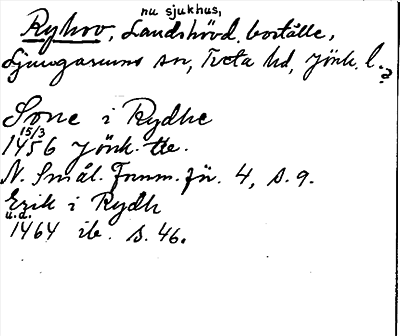 nu sjukhus,
Ryhov, Landshövd. boställe,
Ljungarums sn, Tveta hd, Jönk. l.
Sone i Rydhe
15/3
1456 Jönk. tb.
N. Smål. Fornm. för. 4, s. 9.
Erik i Rydh
u.d.
1464 ib. s. 46.